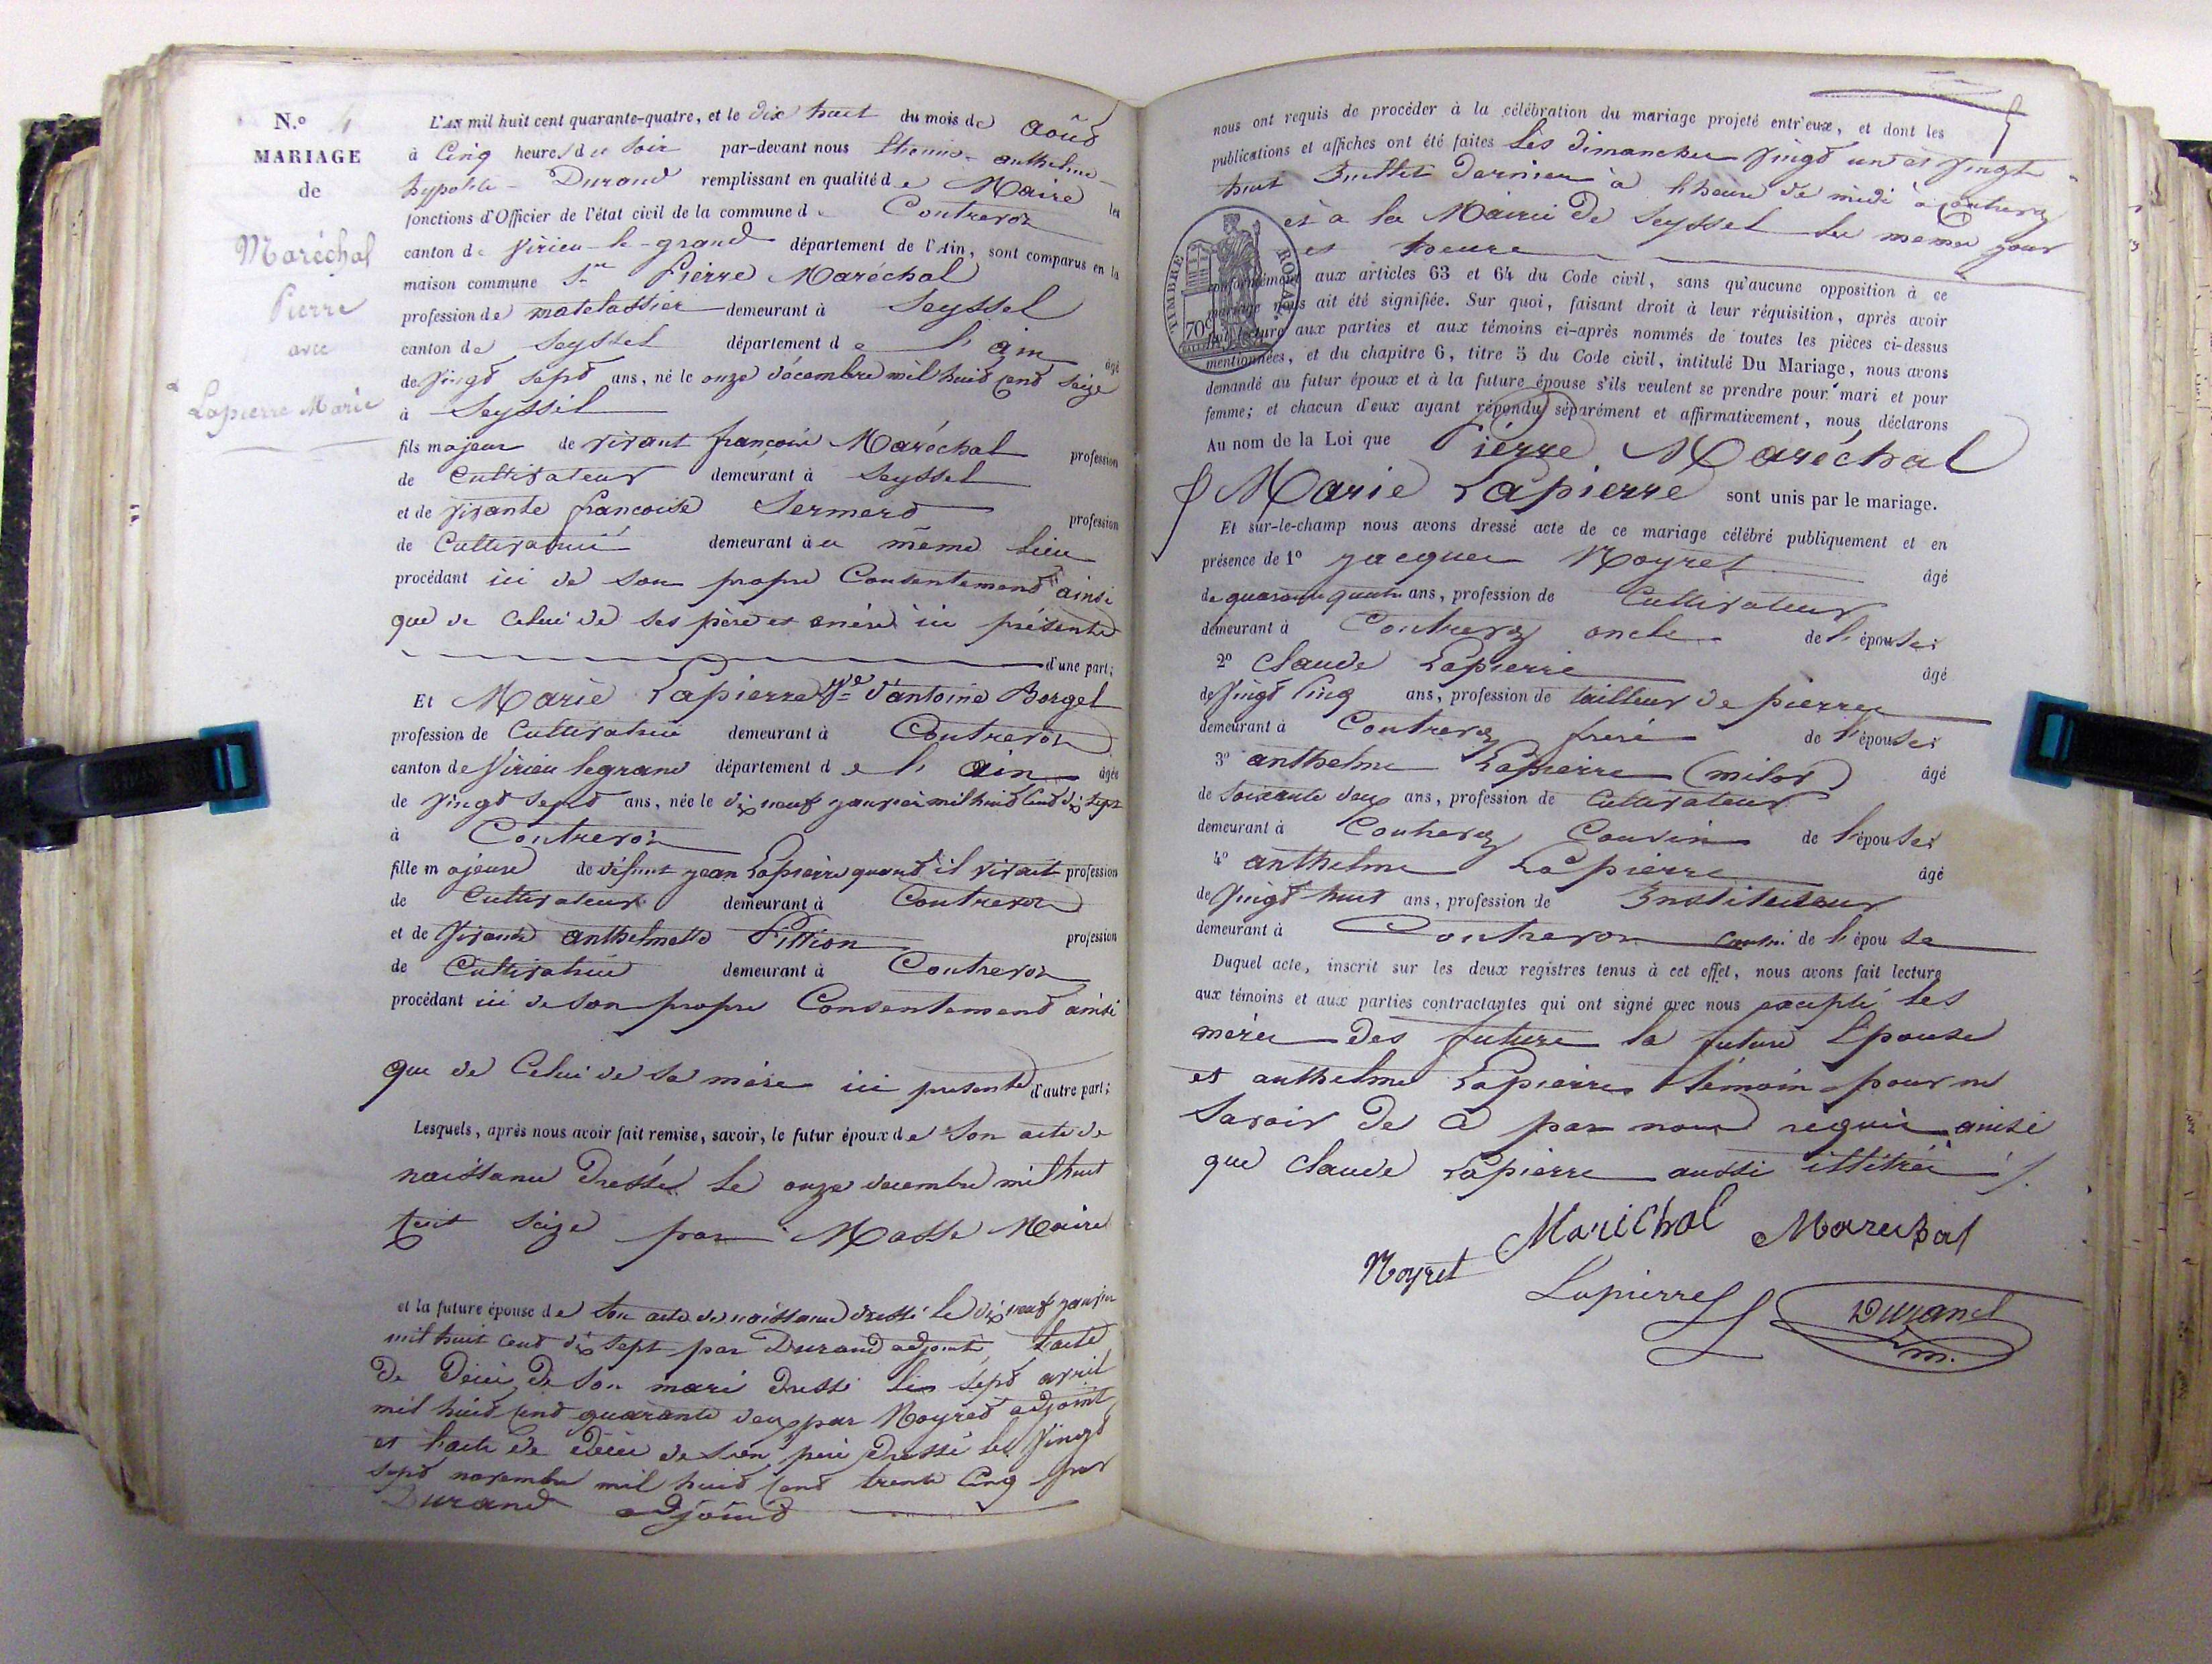 N.º 4
MARIAGE
de
Maréchal
Pierre
avec
Lapierre Marie
L'AN mil huit cent quarante-quatre, et le dix huit du mois de août
à Cinq heures du soir par-devant nous Etienne anthelme
hypolite Durand remplissant en qualité de Maire les
fonctions d'Officier de l'état civil de la commune de Contrevoz
canton de Virieu-le-grand département de l'Ain, sont comparus en la
maison commune Sr Pierre Maréchal
profession de matelassier demeurant à Seyssel
canton de Seyssel département de l'ain âgé
de Vingt sept ans, né le onze décembre mil huit cent seize
à Seyssel
fils majeur de vivant françois Maréchal profession
de Cultivateur demeurant à Seyssel
et de vivante francoise Sermard profession
de Cultivatrice demeurant à u même lieu
procédant ici de son propre Consentement ainsi
que de celui de ses père et mère ici présents
d'une part;
Et Marie Lapierre Ve d'antoine Borgel
profession de Cultivatrice demeurant à Contrevoz
canton de Virieu legrand département de l'ain âgée
de Vingt sept ans, née le dix neuf janvier mil huit cent dix sept
à Contrevoz
fille majeure de défunt jean Lapierre quand il vivait profession
de Cultivateur demeurant à Contrevoz
et de Vivante anthelmette Pittion profession
de Cultivatrice demeurant à Contrevoz
procédant ici de son propre Consentement ainsi
que de Celui de sa mère ici présente d'autre part;
Lesquels, après nous avoir fait remise, savoir, le futur époux de son acte de
naissance Dressé le onze decembre mil huit
cent seize par Masse Maire
et la future épouse de son acte de naissance dressé le dix neuf janvier
mil huit cent dix sept par Durand adjoint, l'acte
De Décès De son mari Dressé le sept avril
mil huit cent quarante deux par Noyret adjoint,
et l'acte de décès de son père Dressé le Vingt
sept novembre mil huit cent trente Cinq par
Durand adjoint
nous ont requis de procéder à la célébration du mariage projeté entr'eux, et dont les
publications et affiches ont été faites les dimanches Vingt un et Vingt
huit Juillet dernier à l'heure de midi à Contrevoz
et à la Mairie De Seyssel les mêmes jour
et heure
TIMBRE ROYAL
70c
conformément aux articles 63 et 64 du Code civil, sans qu'aucune opposition à ce
mariage nous ait été signifiée. Sur quoi, faisant droit à leur réquisition, après avoir
fait lecture aux parties et aux témoins ci-après nommés de toutes les pièces ci-dessus
mentionnées, et du chapitre 6, titre 5 du Code civil, intitulé Du Mariage, nous avons
demandé au futur époux et à la future épouse s'ils veulent se prendre pour mari et pour
femme; et chacun d'eux ayant répondu séparément et affirmativement, nous déclarons
Au nom de la Loi que Pierre Maréchal
& Marie Lapierre sont unis par le mariage.
Et sur-le-champ nous avons dressé acte de ce mariage célébré publiquement et en
présence de 1º jacques Noyret âgé
de quarante quatre ans, profession de Cultivateur
demeurant à Contrevoz oncle de l'épouse
2º Claude Lapierre âgé
de Vingt Cinq ans, profession de tailleur de pierres
demeurant à Contrevoz frère de l'épouse
3º anthelme Lapierre (milor) âgé
de soixante deux ans, profession de Cultivateur
demeurant à Contrevoz Cousin de l'épouse
4º anthelme Lapierre âgé
de Vingt huit ans, profession de Instituteur
demeurant à Contrevoz de l'épouse
Duquel acte, inscrit sur les deux registres tenus à cet effet, nous avons fait lecture
aux témoins et aux parties contractantes qui ont signé avec nous excepté les
mères des futurs la future Epouse
et anthelme Lapierre témoin pour ne
savoir De ce par nous requis ainsi
que Claude Lapierre aussi illitéré
Marichal Marechal
Noyret
Lapierre
Durand
m.